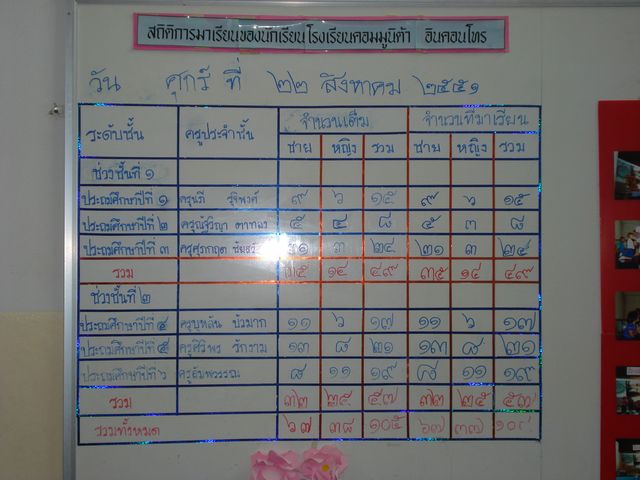 สถิติการมาเรียนของนักเรียนโรงเรียนคอมมูนิต้า อินคอนโทร
วัน ศุกร์ ที่ ๒๒ สิงหาคม ๒๕๕๑
ระดับชั้น ครูประจำชั้น จำนวนเต็ม จำนวนที่มาเรียน
ชาย หญิง รวม ชาย หญิง รวม
ช่วงชั้นที่ ๑
ประถมศึกษาปีที่ ๑ ๙ ๖ ๑๕ ๙ ๖ ๑๕
ประถมศึกษาปีที่ ๒ ๕ ๘ ๕ ๓ ๘
ประถมศึกษาปีที่ ๓ ๓ ๒๔ ๒๑ ๓ ๒๔
รวม ๓๕ ๑๔ ๔๙ ๓๕ ๑๔ ๔๙
ช่วงชั้นที่ ๒
ประถมศึกษาปีที่ ๔ ครูบุหลัน บัวมาก ๑๑ ๖ ๑๗ ๑๑ ๖ ๑๗
ประถมศึกษาปีที่ ๕ ครูศิริพร รักงาม ๑๓ ๘ ๒๑ ๑๓ ๘ ๒๑
ประถมศึกษาปีที่ ๖ ครูอัมพวรรณ ๘ ๑๑ ๑๙ ๘ ๑๑ ๑๙
รวม ๓๒ ๒๕ ๕๗ ๓๒ ๒๕ ๕๗
รวมทั้งหมด ๖๗ ๓๘ ๑๐๕ ๖๗ ๓๗